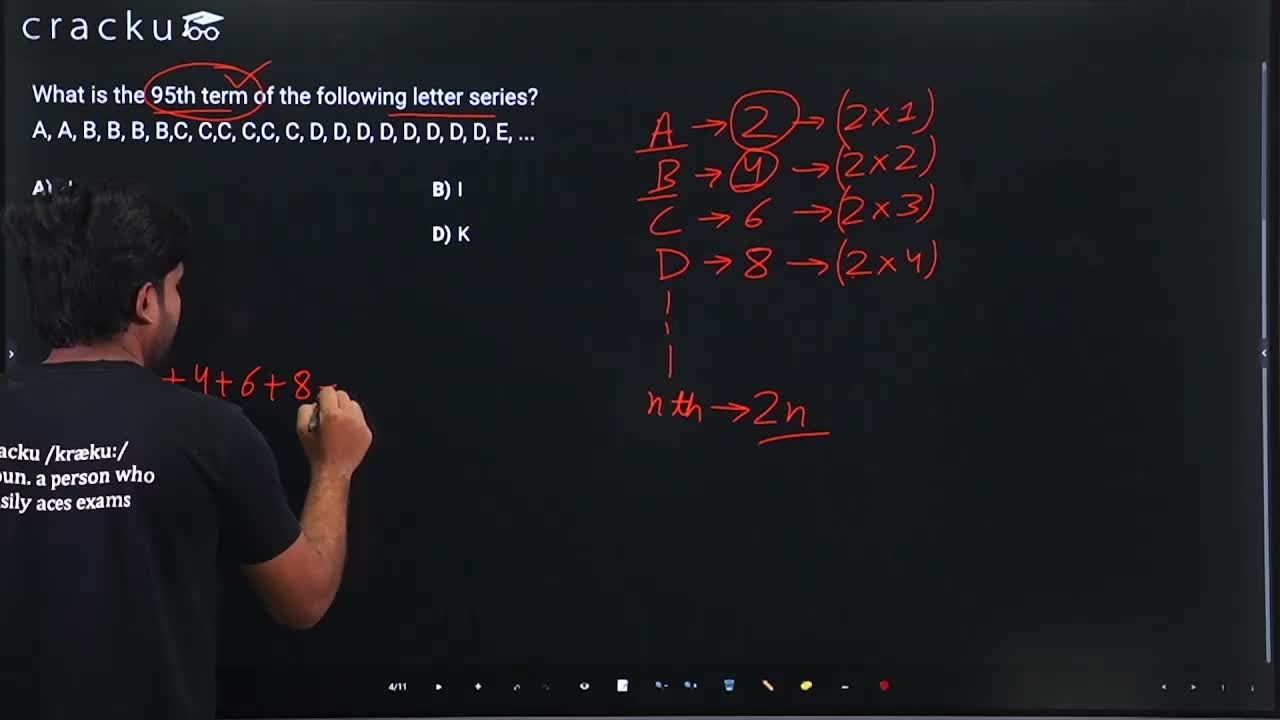 cracku
What is the 95th term of the following letter series?
A, A, B, B, B, B,C, C,C, C,C, C, D, D, D, D, D, D, D, D, E, ...
A)
B) I
D) K
A → 2 → (2×1)
B → 4 → (2×2)
C → 6 → (2×3)
D → 8 → (2×4)
nth → 2n
+ 4 + 6 + 8
acku /kræku:/
oun. a person who
sily aces exams
4/11